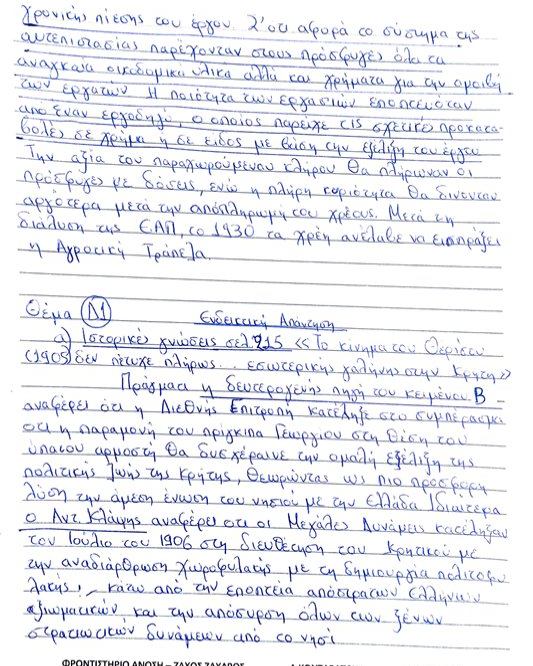 χρονικής πίεσης του έργου. Σ'ότι αφορά το σύστημα της
αυτεπιστασίας παρέχονταν στους πρόσφυγες όλα τα
αναγκαία οικοδομικά υλικά αλλά και χρήματα για την αμοιβή
των εργατών. Η ποιότητα των εργασιών εποπτευόταν
από έναν εργοδηγό, ο οποίος παρείχε τις σχετικές προκατα-
βολές σε χρήμα ή σε είδος με βάση την εξέλιξη του έργου
Την αξία του παραχωρούμενου κλήρου θα πλήρωναν οι
πρόσφυγες με δόσεις, ενώ η πλήρη κυριότητα θα δινόταν
αργότερα μετά την αποπληρωμή του χρέους. Μετά τη
διάλυση της ΕΑΠ, το 1930 τα χρέη ανέλαβε να εισπράξει
η Αγροτική Τράπεζα.
Θέμα Δ1 Ενδεικτική Απάντηση
α) Ιστορικές γνώσεις σελ. 215 «Το κίνημα του Θερίσου
(1905) δεν πέτυχε πλήρως... εσωτερικής γαλήνης στην Κρήτη»
Πράγματι η δευτερογενής πηγή του κειμένου Β
αναφέρει ότι η Διεθνής Επιτροπή κατέληξε στο συμπέρασμα
ότι η παραμονή του πρίγκιπα Γεωργίου στη θέση του
ύπατου αρμοστή θα δυσχέραινε την ομαλή εξέλιξη της
πολιτικής ζωής της Κρήτης, θεωρώντας ως πιο πρόσφορη
λύση την άμεση ένωση του νησιού με την Ελλάδα Ιδιαίτερα
ο Αντ. Κλάψης αναφέρει ότι οι Μεγάλες Δυνάμεις κατέληξαν
τον Ιούλιο του 1906 στη διευθέτηση του Κρητικού με
την αναδιάρθρωση χωροφυλακής με τη δημιουργία πολιτοφυ
λακής, κάτω από την εποπτεία απόστρατων Ελλήνων
αξιωματικών και την απόσυρση όλων των ξένων
στρατιωτικών δυνάμεων από το νησί